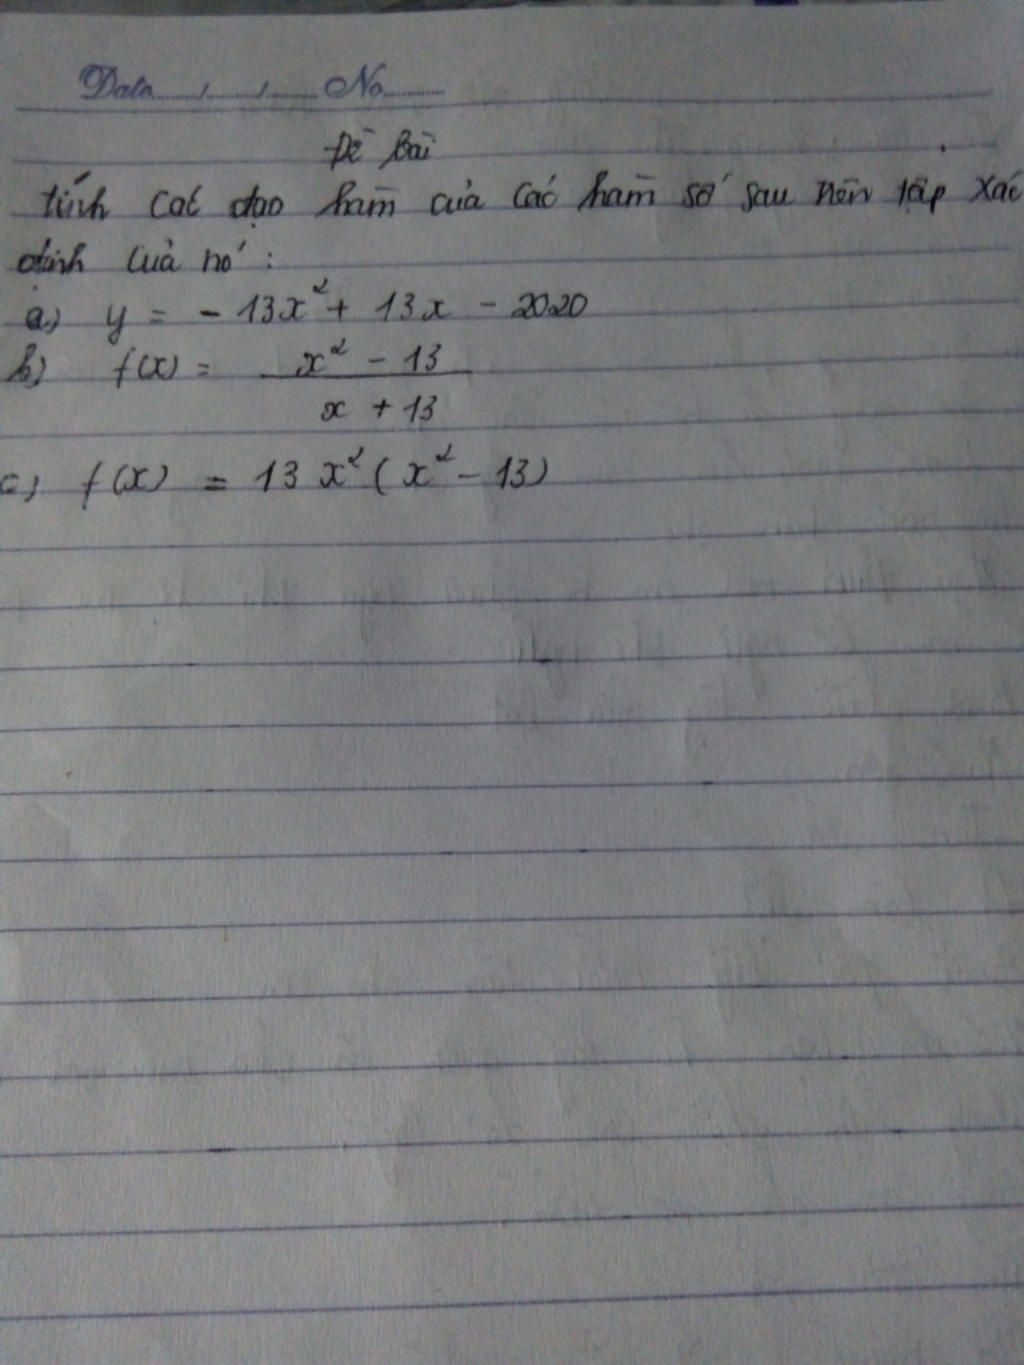 Date / / No
Đề bài
tính các đạo hàm của các hàm số sau trên tập xác
định của nó :
a) y = - 13x² + 13x - 2020
b) f(x) = x² - 13
x + 13
c) f(x) = 13 x² ( x² - 13)